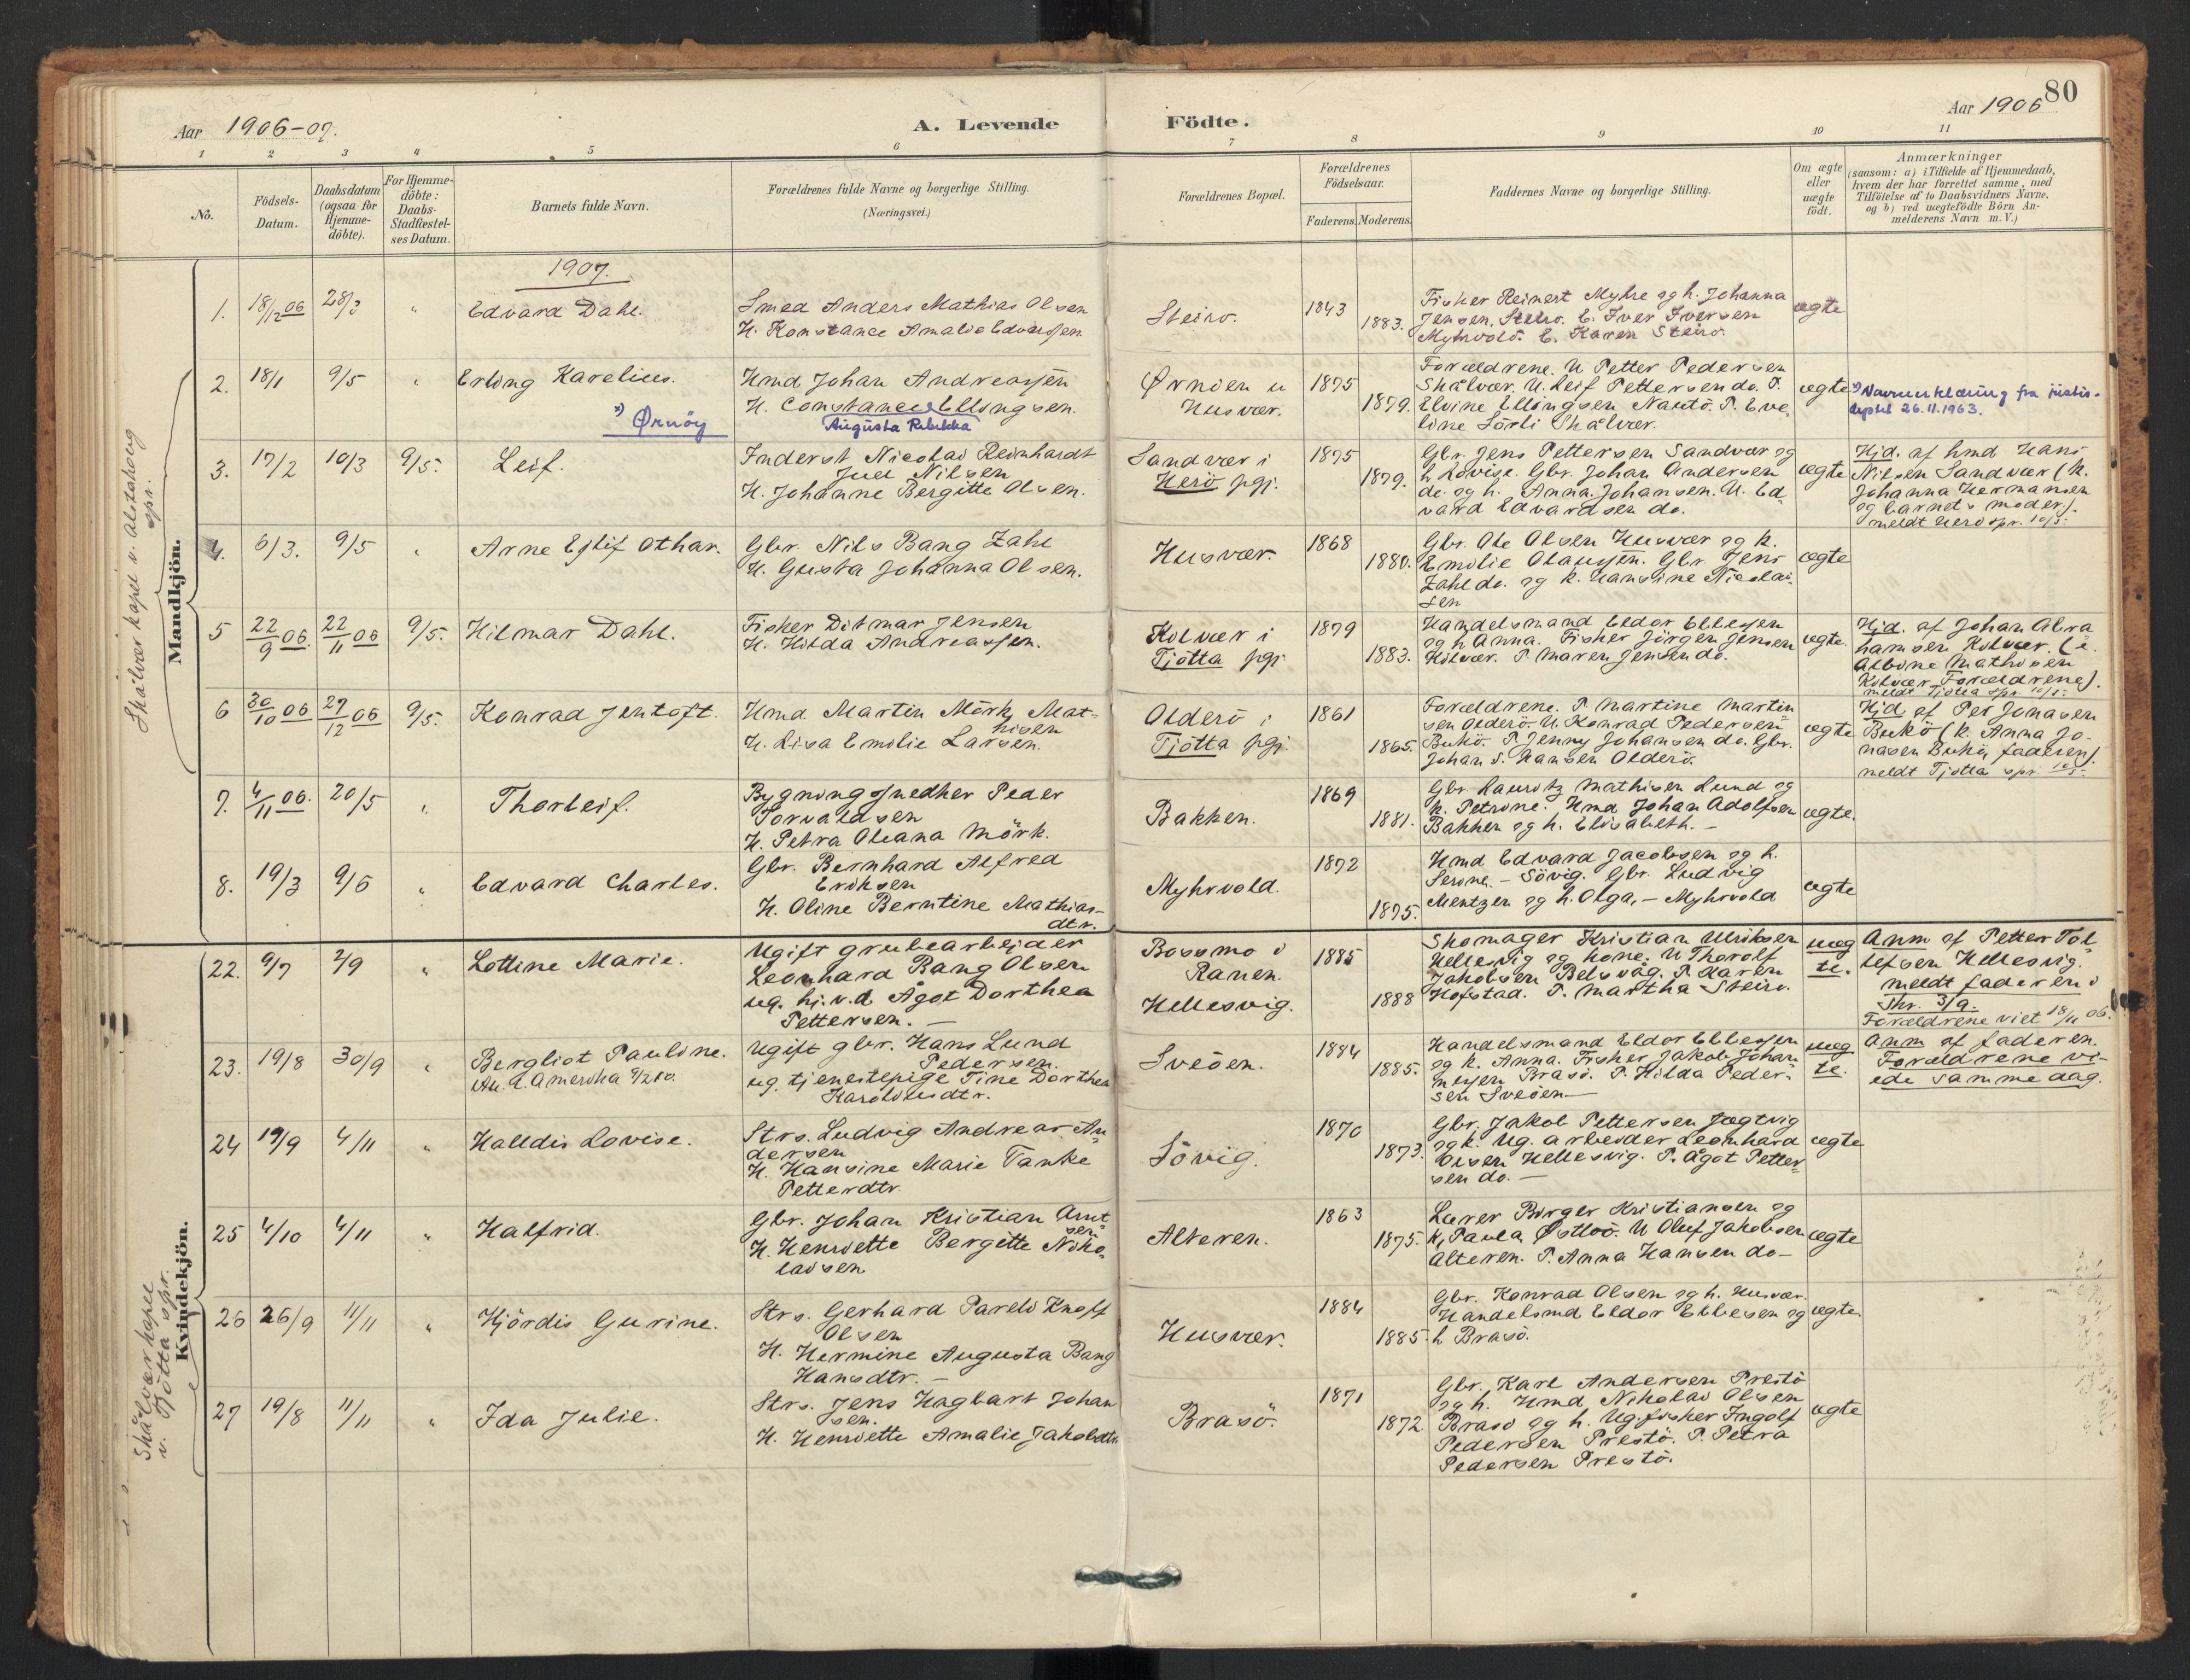 80
Aar 1906-07.
A. Levende
Födte.
Aar 1906
1 2 3 4 5 6 7 8 9 10 11
No.
Födsels-
Datum.
Daabsdatum
(ogsaa for
Hjemme-
döbte).
For Hjemme-
döbte:
Daabs-
Stadfæstel-
ses Datum.
Barnets fulde Navn.
Forældrenes fulde Navne og borgerlige Stilling.
(Næringsvei.)
Forældrenes Bopæl.
Forældrenes
Födselsaar.
Faderens. Moderens.
Faddernes Navne og borgerlige Stilling.
Om ægte
eller
uægte
födt.
Anmærkninger
(saasom: a) i Tilfælde af Hjemmedaab,
hvem der har forrettet samme, med
Tilföielse af to Daabsvidners Navne.
og b) ved uægtefödte Börn An-
melderens Navn m. V.)
Mandkjön.
Skålvær kapel v. Alstahoug
spr.
1907.
1. 18/12 06 28/3 " Edvard Dahl.
Smed Anders Mathias Olsen
H. Konstance Amalie Edvardsen
Steiro.
1843
1883.
Fisker Reinert Myhre og h. Johanna
Jensen, Steiro. E. Iver Iversen
Myhrvold. E. Karen Steiro.
ægte
2. 18/1 9/5 " Erling Karelius.
*) Ørnöy
Hmd Johan Andreassen
H. Constance Ellingsen.
Augusta Rebekka
Ørnöen u
Husvær.
1875
1879.
Forældrene. U Petter Pedersen
Skålvær. U. Leif Pettersen do. P.
Elvine Ellingsen Nautö. P. Eve-
line Sörli Skålvær.
ægte
*) Navneerklæring fra justis-
dyptet 26.11.1963.
3. 17/2 10/3 9/5. Leif.
Inderst Nicolai Reinhardt
Juel Nilsen
H. Johanne Bergitte Olsen.
Sandvær i
Herö pgj.
1875
1879.
Gbr. Jens Pettersen Sandvær og
h Lovise. Gbr. Johan Andersen
do. og h. Anna. Johansen. U. Ed-
vard Edvardsen do.
ægte
Hjd. af hmd Hans
Nilsen Sandvær (k.
Johanna Hermansen
og barnets moder).
meldt Herö spr. 10/5.
4. 6/3. 9/5 " Arne Eylif Othar.
Gbr. Nils Bang Zahl
H. Gusta Johanna Olsen.
Husvær.
1868
1880.
Gbr. Ole Olsen Husvær og k.
Emilie Olaussen. Gbr. Jens
Zahl do. og k. Hansine Nicolai-
sen
ægte
5 22/9 06. 22/11 06 9/5. Hilmar Dahl.
Fisker Ditmar Jensen
H. Hilda Andreassen.
Kolvær i
Tjötta pgj.
1879
1883.
Handelsmand Eldor Ebbesen
og h Anna. Fisker Jörgen Jensen
Kolvær. P Maren Jensen do.
ægte.
Hjd. af Johan Abra
hamsen Kolvær. (e.
Albine Mathisen
Kolvær Forældrene).
meldt Tjötta spr 10/5.
6 30/10 06 27/12 06 9/5. Konrad Jentoft.
Hmd. Martin Mörk Mat-
hisen
H. Lisa Emilie Larsen.
Olderö i
Tjötta pgj.
1861
1865.
Forældrene. P Martine Martin
sen Olderö. U. Konrad Pedersen
Bukö. P. Jenny Johansen do. Gbr.
Johan S. Hansen Olderö.
ægte
Hjd af Per Jonasen
Bukö (k. Anna Jo-
nasen Bukö, faderen).
meldt Tjötta spr 10/5.
7. 4/11 06. 20/5 " Thorleif.
Bygningssnedker Peder
Torvaldsen
H. Petra Oleana Mörk.
Bakken.
1869
1881.
Gbr Lauritz Mathisen Lund og
k. Petrine. Hmd Johan Adolfsen
Bakken og h. Elisabeth. –
ægte.
8. 19/3 9/6 " Edvard Charles.
Gbr. Bernhard Alfred
Eriksen
H. Oline Berntine Mathias-
dtr.
Myhrvold.
1872
1875.
Hmd Edvard Jacobsen og h.
Serine. – Sövig. Gbr. Ludvig
Mentzen og h. Olga, – Myhrvold
ægte
Kvindekjön.
Skålvær kapel
v. Tjötta spr.
22. 9/7 2/9 " Lottine Marie.
Ugift grubearbejder
Leonhard Bang Olsen
ug. hj.v.d Ågot Dorthea
Pettersen. –
Bossmo i
Ranen.
Hellesvig.
1885
1888
Skomager Kristian Ulriksen
Hellesvig og kone. U Thorolf
Jakobsen Belsvåg. P. Karen
Hofstad. P. Martha Steiro.
uæg
te.
Anm af Petter Tol-
lefsen Hellesvig.
meldt faderen i
Skr. 3/9.
Forældrene viet 18/11 06.
23. 19/8 30/9 " Bergliot Pauline.
Ugift gbr. Hans Lund
Pedersen.
ug. tjenestepige Tine Dorthea
Karolilusdtr.
Sveöen.
1884
1885.
Handelsmand Eldor Ebbesen
og k. Anna. Fisker Jakob Johan
nessen Brasö. P. Hilda Peder-
sen Sveöen –
uæg
te.
Anm af faderen.
Forældrene vi-
ede samme dag.
24 19/9 4/11 " Halldis Lovise.
Strs. Ludvig Andreas An-
dersen
H. Hansine Marie Tanke
Petterdtr.
Sövig.
1870
1873.
Gbr. Jakob Pettersen Jægtvig
og k. Ug. arbeider Leonhard
Olsen Hellesvig. P. Ågot Petter-
sen do. –
ægte
25 4/10 4/11 " Halfrid.
Gbr. Johan Kristian Arnt
sen
H. Henriette Bergette Niko-
laisen
Alteren.
1863
1875.
Lærer Birger Kristiansen og
k, Paula Östbö. U Oluf Jakobsen
Alteren. P. Anna Hansen do –
ægte
26 26/9 11/11 " Hjördis Gurine.
Strs. Gerhard Pareli Knoff
Olsen
H. Hermine Augusta Bang
Hansdtr. –
Husvær.
1884
1885.
Gbr. Konrad Olsen og h. Husvær.
Handelsmd Eldor Ebbesen og
h Brasö.
ægte
27 19/8 11/11 " Ida Julie.
Strs. Jens Hagbart Johan
sen.
H. Henriette Amalie Jakobdtr
Brasö.
1871
1872
Gbr. Karl Andersen Prestö
og h. Hmd. Nikolai Olsen
Brasö og h. Ug. fisker Ingolf
Pedersen Prestö. P. Petra
Pedersen Prestö.
ægte